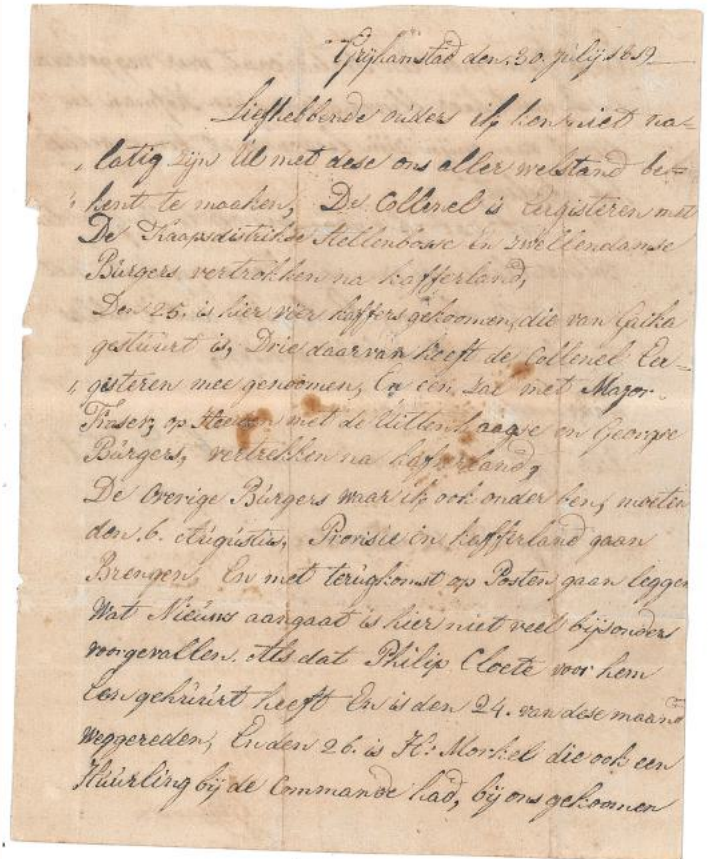 Grijhamstad den 30 julij 1819
Liefhebbende ouders ik kon niet na=
latig zijn Ul met dese ons aller welstand be=
kent te maaken, De Collenel is Eergisteren met
De Kaapsdistrikse Stellenbosse en zwellendamse
Burgers vertrokken na kafferland,
Den 25. is hier vier kaffers gekoomen, die van Gaika
gestuurt is, Drie daarvan heeft de Collenel Eer=
gisteren mee genoomen, En een zal met Major
Fraser, op Heeden met de Uittenhaagse en Georgse
Burgers, vertrekken na kafferland,
De Overige Burgers waar ik ook onder ben, moeten
den 6. Augustus, Provisie in kafferland gaan
Brengen, En met terugkomst op Posten gaan leggen
Wat Nieuws aangaat is hier niet veel bijsonders
voorgevallen. Als dat Philip Cloete voor hem
Een gehuurt heeft En is den 24. van dese maand
weggereden, En den 26. is H: Morkel die ook een
Huurling bij de Commande had, bij ons gekoomen